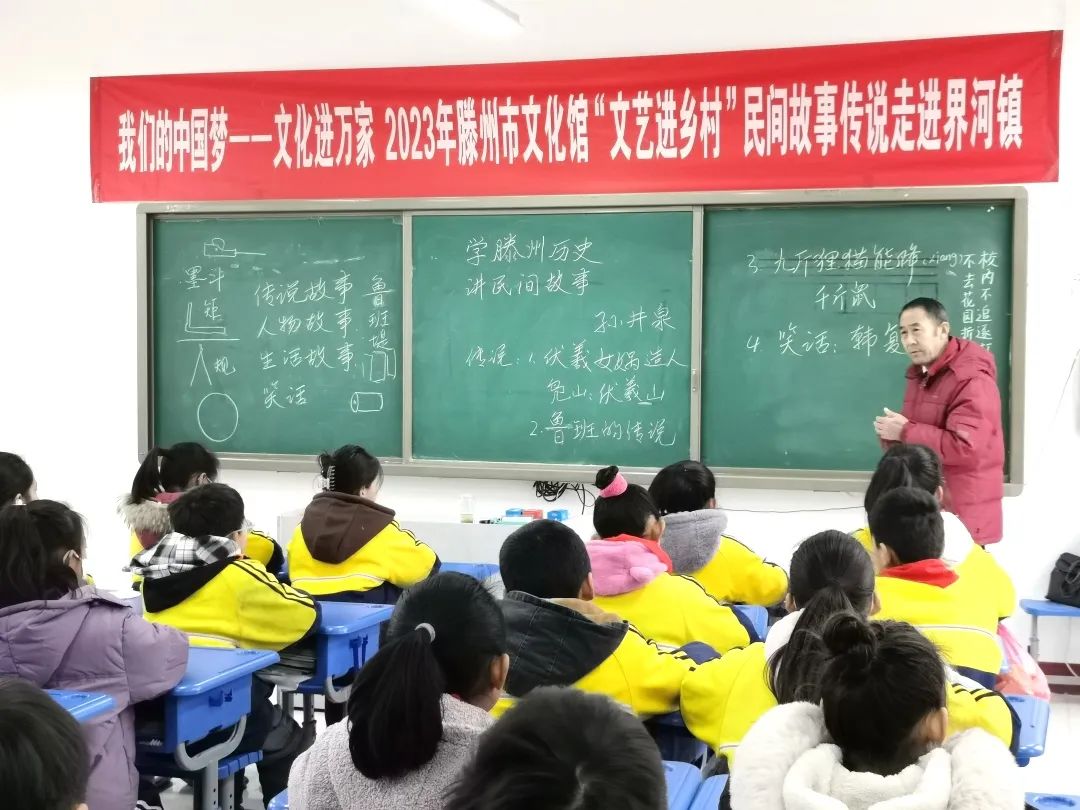 我们的中国梦——文化进万家 2023年滕州市文化馆“文艺进乡村”民间故事传说走进界河镇
墨斗
矩
规
传说故事
人物故事
生活故事
笑话
鲁班堤
学滕州历史
讲民间故事
孙井泉
传说：1.伏羲女娲造人
凫山：伏羲山
2.鲁班的传说
3.九斤狸猫能降(xiang)
千斤鼠
4.笑话：韩复
校内不追逐
不去花园